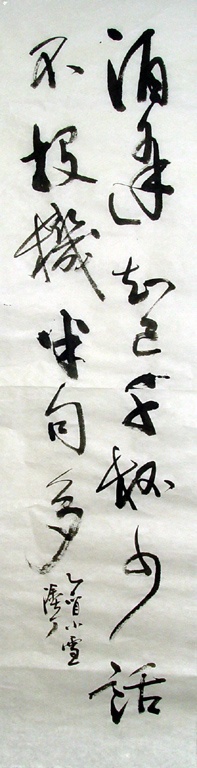 酒逢知己千杯少話
不投機半句多
乙酉小雪